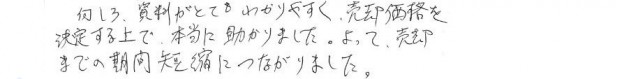 何しろ、資料がとてもわかりやすく、売却価格を
決定する上で、本当に助かりました。よって、売却
までの期間短縮につながりました。